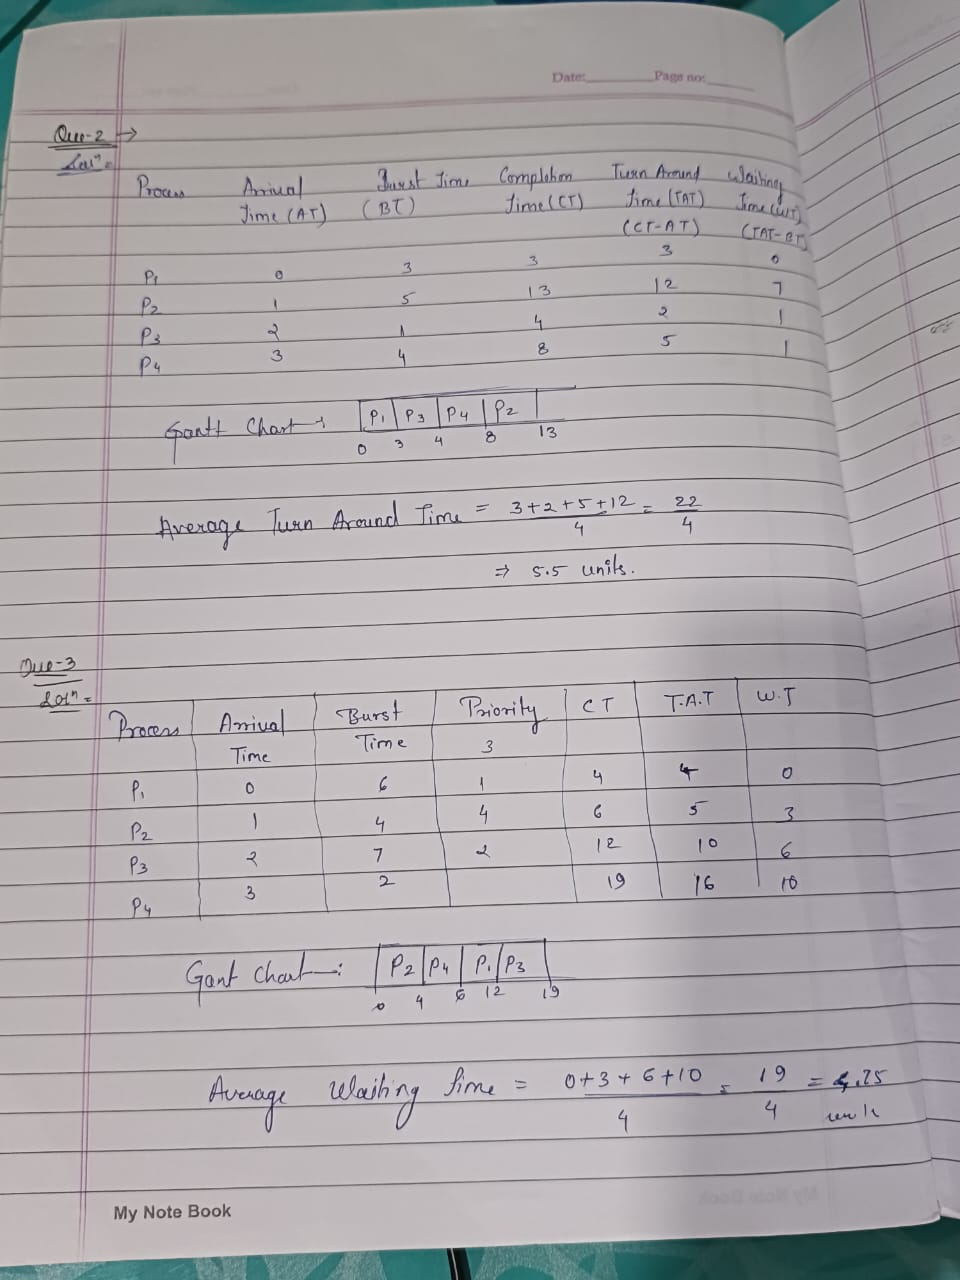 Date: Page no:
Que-2 →
Solⁿ =
Process Arrival Time (AT) Burst Time (BT) Completion Time (CT) Turn Around Time (TAT) (CT-AT) Waiting Time (WT) (TAT-BT)
P1 0 3 3 3 0
P2 1 5 13 12 7
P3 2 1 4 2 1
P4 3 4 8 5 1
Gantt Chart :
P1 P3 P4 P2
0 3 4 8 13
Average Turn Around Time = 3+2+5+12 / 4 = 22 / 4
⇒ 5.5 units.
Que-3
Solⁿ =
Process Arrival Time Burst Time Priority CT T.A.T W.T
3
P1 0 6 1 4 4 0
P2 1 4 4 6 5 3
P3 2 7 2 12 10 6
P4 3 2 19 16 10
Gant Chart :
P2 P4 P1 P3
0 4 6 12 19
Average Waiting Time = 0+3+6+10 / 4 = 19 / 4 = .25
My Note Book